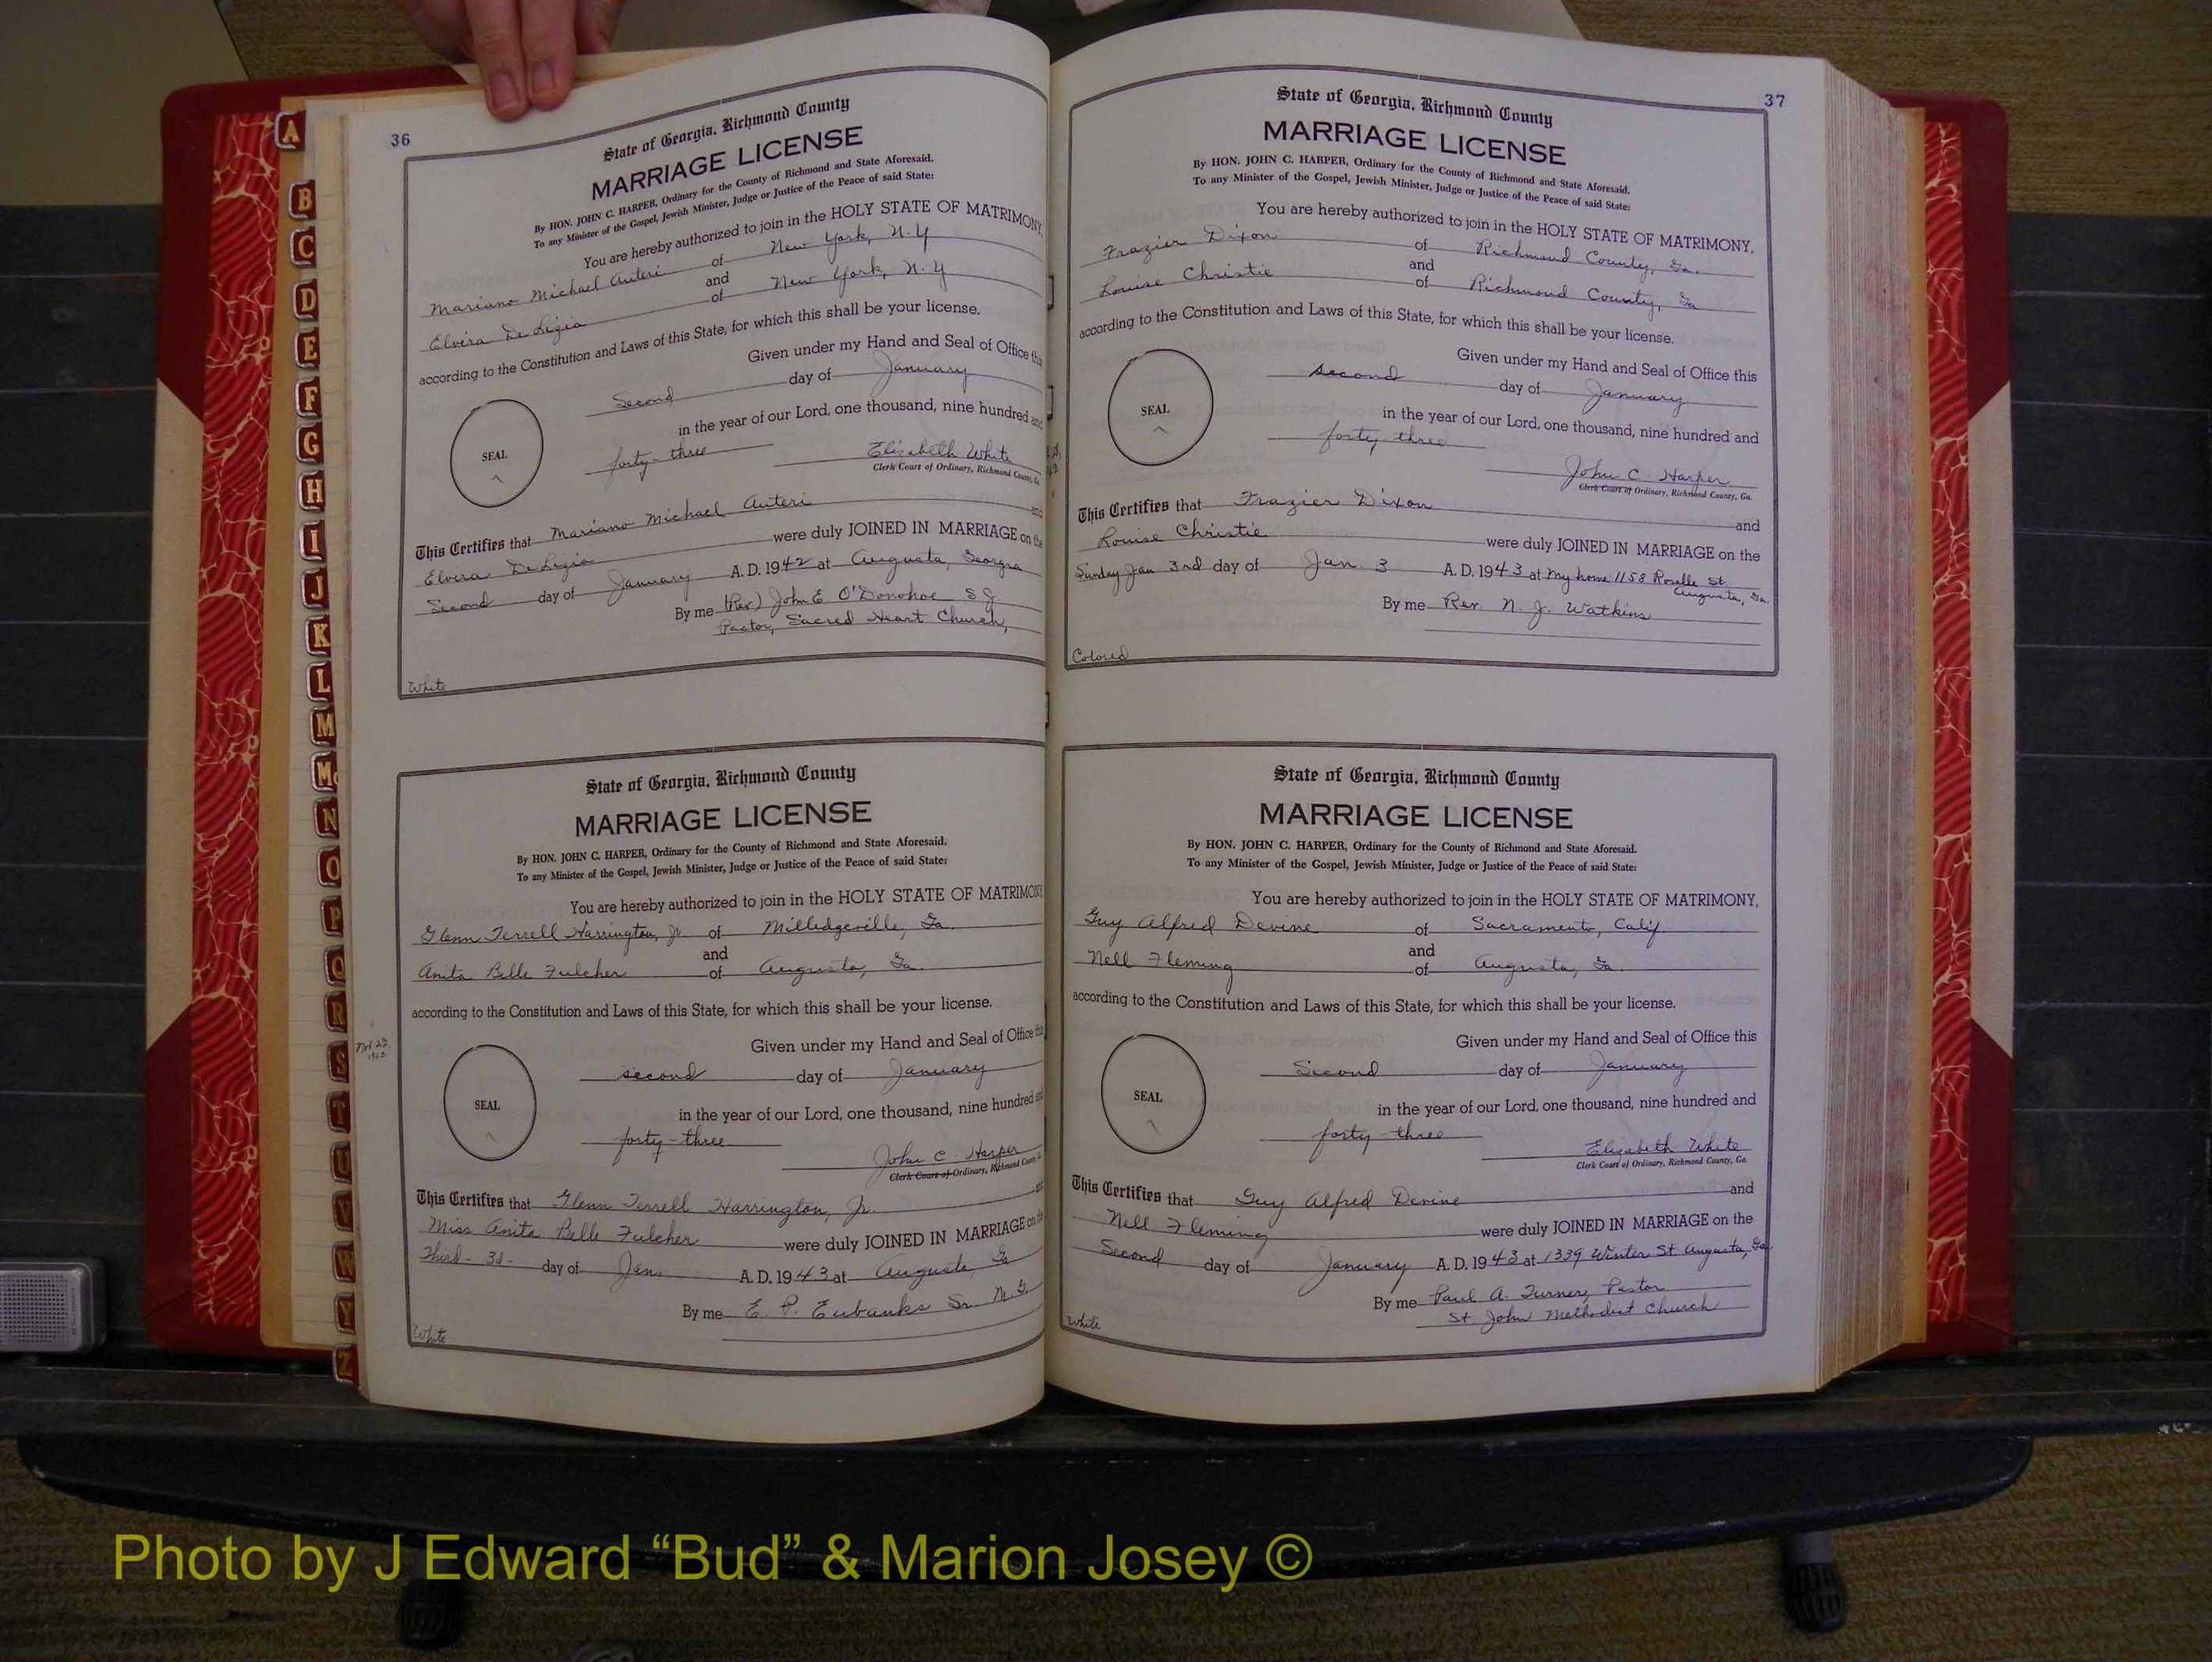 36
State of Georgia, Richmond County
MARRIAGE LICENSE
By HON. JOHN C. HARPER, Ordinary for the County of Richmond and State Aforesaid.
To any Minister of the Gospel, Jewish Minister, Judge or Justice of the Peace of said State:
You are hereby authorized to join in the HOLY STATE OF MATRIMONY,
Mariano Michael Auteri of New York, N.Y
and
Elvira De Lizia of New York, N.Y
according to the Constitution and Laws of this State, for which this shall be your license.
Given under my Hand and Seal of Office this
Second day of January
in the year of our Lord, one thousand, nine hundred and
SEAL
forty-three
Elizabeth White
Clerk Court of Ordinary, Richmond County, Ga
This Certifies that Mariano Michael Auteri and
Elvira De Lizia were duly JOINED IN MARRIAGE on the
Second day of January A.D. 1942 at Augusta, Georgia
By me (Rev) John E O'Donohoe S J.
Pastor, Sacred Heart Church,
White
State of Georgia, Richmond County
MARRIAGE LICENSE
By HON. JOHN C. HARPER, Ordinary for the County of Richmond and State Aforesaid.
To any Minister of the Gospel, Jewish Minister, Judge or Justice of the Peace of said State:
You are hereby authorized to join in the HOLY STATE OF MATRIMONY
Glenn Terrell Harrington, Jr of Milledgeville, Ga.
and
Anita Belle Fulcher of Augusta, Ga.
according to the Constitution and Laws of this State, for which this shall be your license.
Given under my Hand and Seal of Office this
second day of January
in the year of our Lord, one thousand, nine hundred and
SEAL
forty-three
John C. Harper
Clerk Court of Ordinary, Richmond County
This Certifies that Glenn Terrell Harrington, Jr. and
Miss Anita Belle Fulcher were duly JOINED IN MARRIAGE on the
Third - 3d - day of Jan. A.D. 1943 at Augusta, Ga
By me E. P. Eubanks Sr. M.G.
White
37
State of Georgia, Richmond County
MARRIAGE LICENSE
By HON. JOHN C. HARPER, Ordinary for the County of Richmond and State Aforesaid.
To any Minister of the Gospel, Jewish Minister, Judge or Justice of the Peace of said State:
You are hereby authorized to join in the HOLY STATE OF MATRIMONY,
Frazier Dixon of Richmond County, Ga.
and
Louise Christie of Richmond County, Ga
according to the Constitution and Laws of this State, for which this shall be your license.
Given under my Hand and Seal of Office this
second day of January
in the year of our Lord, one thousand, nine hundred and
SEAL
forty three
John C. Harper
Clerk Court of Ordinary, Richmond County, Ga.
This Certifies that Frazier Dixon and
Louise Christie were duly JOINED IN MARRIAGE on the
Sunday Jan 3rd day of Jan 3 A.D. 1943 at my home 1158 St.
Augusta, Ga.
By me Rev. N. J. Watkins
Colored
State of Georgia, Richmond County
MARRIAGE LICENSE
By HON. JOHN C. HARPER, Ordinary for the County of Richmond and State Aforesaid.
To any Minister of the Gospel, Jewish Minister, Judge or Justice of the Peace of said State:
You are hereby authorized to join in the HOLY STATE OF MATRIMONY,
Guy Alfred Devine of Sacramento, Calif.
and
Nell Fleming of Augusta, Ga.
according to the Constitution and Laws of this State, for which this shall be your license.
Given under my Hand and Seal of Office this
Second day of January
in the year of our Lord, one thousand, nine hundred and
SEAL
forty three
Elizabeth White
Clerk Court of Ordinary, Richmond County, Ga
This Certifies that Guy Alfred Devine and
Nell Fleming were duly JOINED IN MARRIAGE on the
Second day of January A.D. 1943 at 1339 Winter St Augusta, Ga.
By me Paul A. Turner, Pastor
St John Methodist Church
White
A
B
C
D
E
F
G
H
I
J
K
L
M
Mc
N
O
P
Q
R
S
T
U
V
W
Y
Z
Photo by J Edward “Bud” & Marion Josey ©